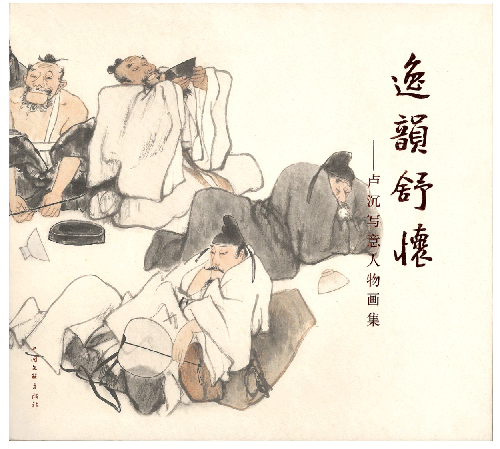 逸韻舒懷
——卢沉写意人物画集